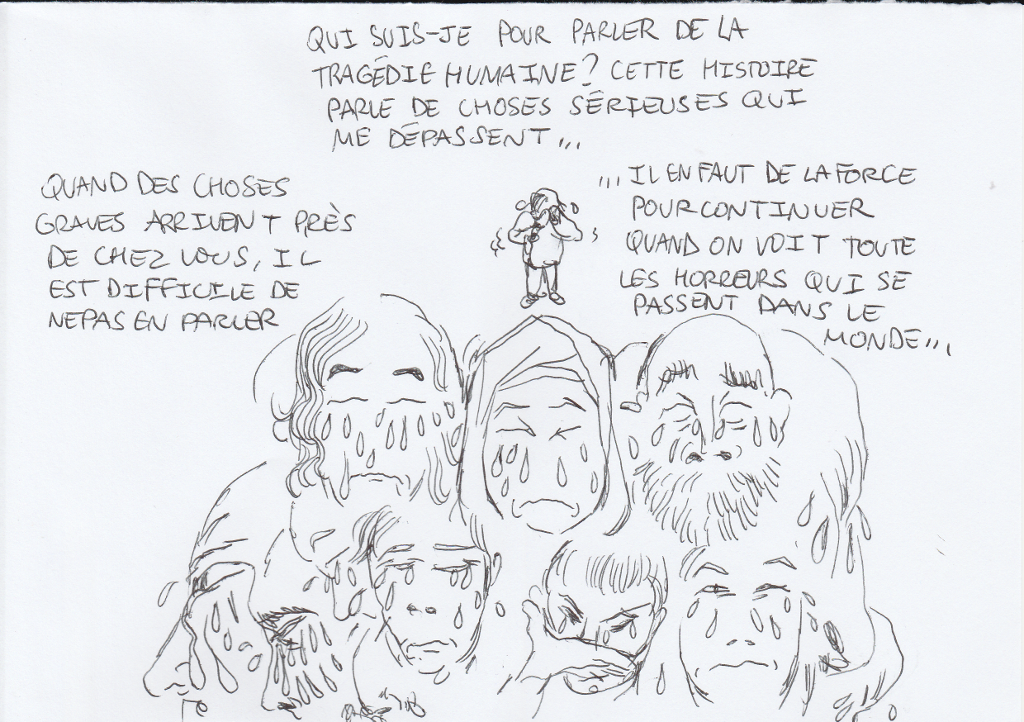 QUI SUIS-JE POUR PARLER DE LA
TRAGÉDIE HUMAINE? CETTE HISTOIRE
PARLE DE CHOSES SÉRIEUSES QUI
ME DÉPASSENT...
QUAND DES CHOSES
GRAVES ARRIVENT PRÈS
DE CHEZ VOUS, IL
EST DIFFICILE DE
NE PAS EN PARLER
...IL EN FAUT DE LA FORCE
POUR CONTINUER
QUAND ON VOIT TOUTE
LES HORREURS QUI SE
PASSENT DANS LE
MONDE...